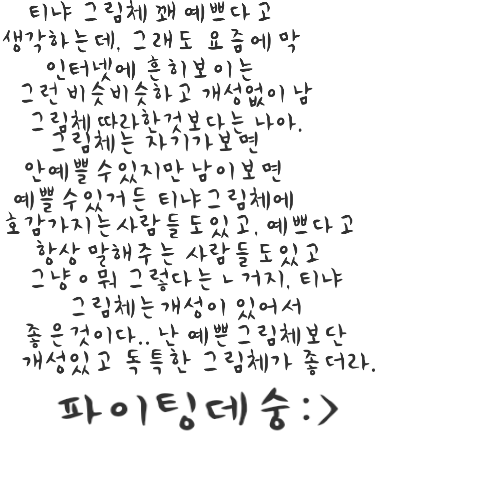 티냐 그림체 꽤 예쁘다고
생각하는데, 그래도 요즘에 막
인터넷에 흔히보이는
그런 비슷비슷하고 개성없이 남
그림체 따라한것보다는 나아.
그림체는 자기가보면
안예쁠 수있지만 남이보면
예쁠 수있거든 티냐그림체에
호감가지는사람들도있고, 예쁘다고
항상 말해주는 사람들도있고
그냥ㅇ뭐 그렇다는ㄴ거지, 티냐
그림체는개성이 있어서
좋은것이다.. 난 예쁜그림체보단
개성있고 독특한 그림체가 좋더라.
파이팅데숭:>